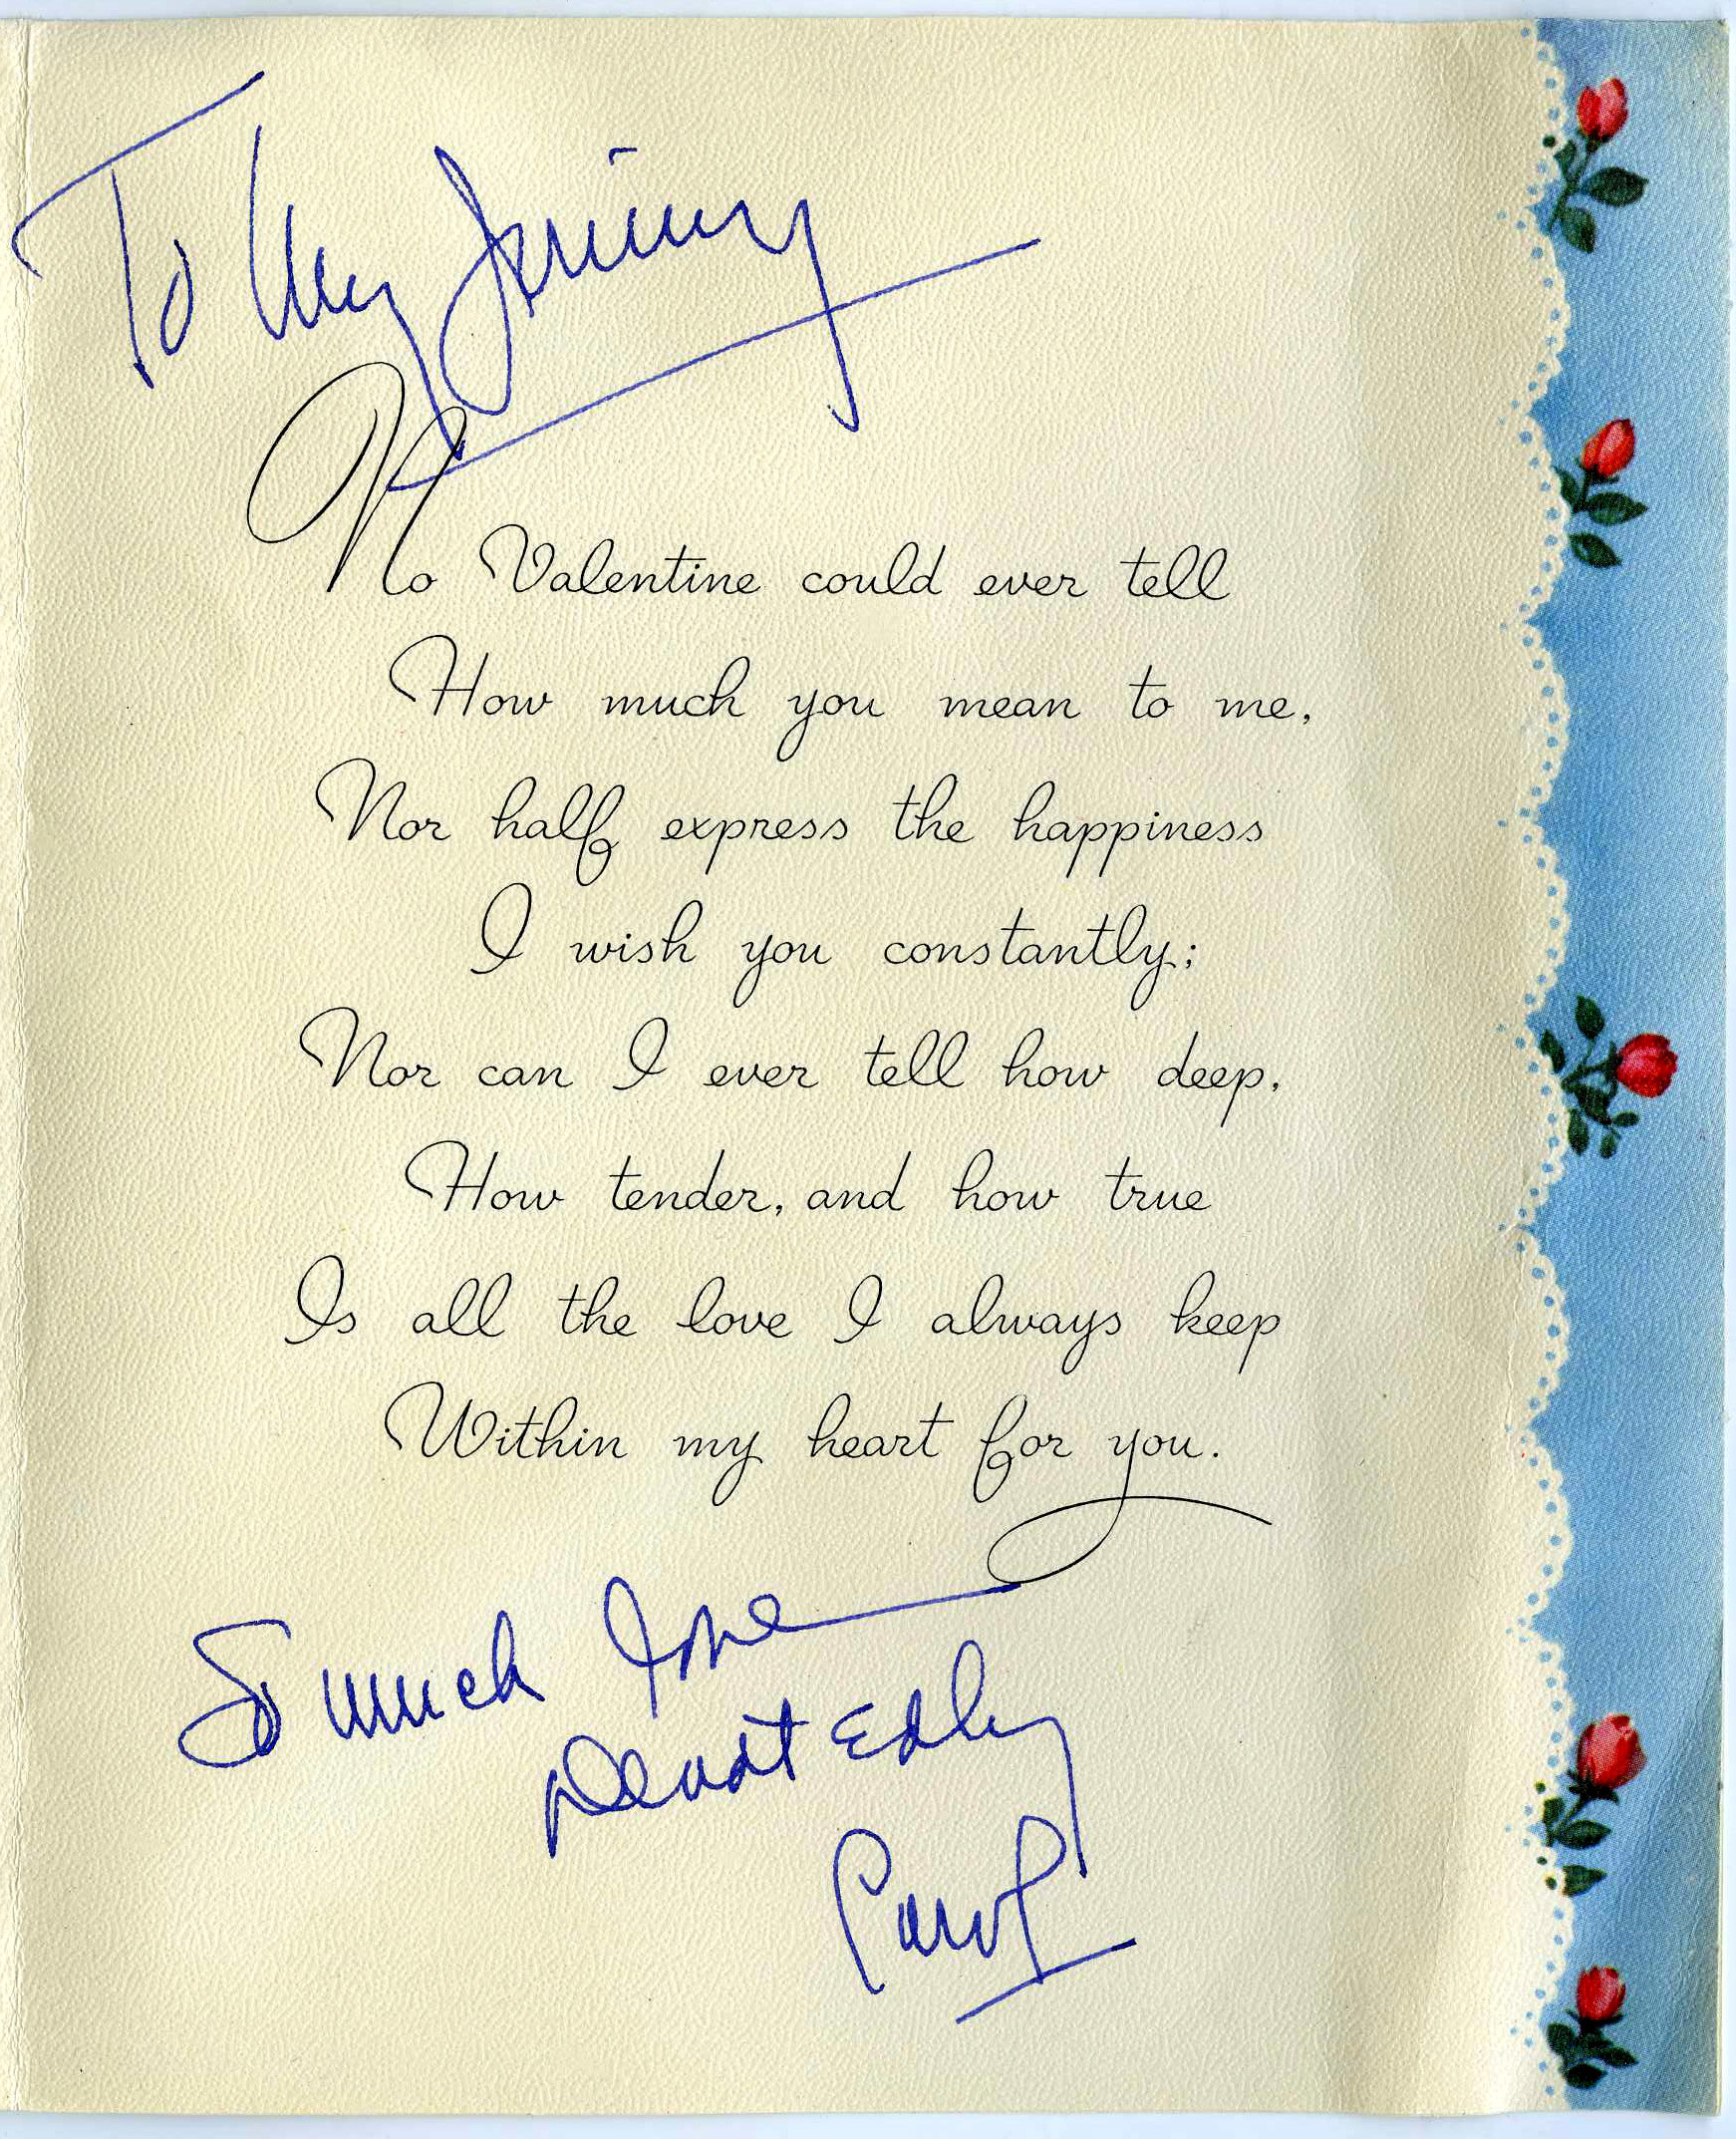 To My Jimmy
No Valentine could ever tell
How much you mean to me,
Nor half express the happiness
I wish you constantly;
Nor can I ever tell how deep,
How tender, and how true
Is all the love I always keep
Within my heart for you.
So much love
DevotEdly
Carol